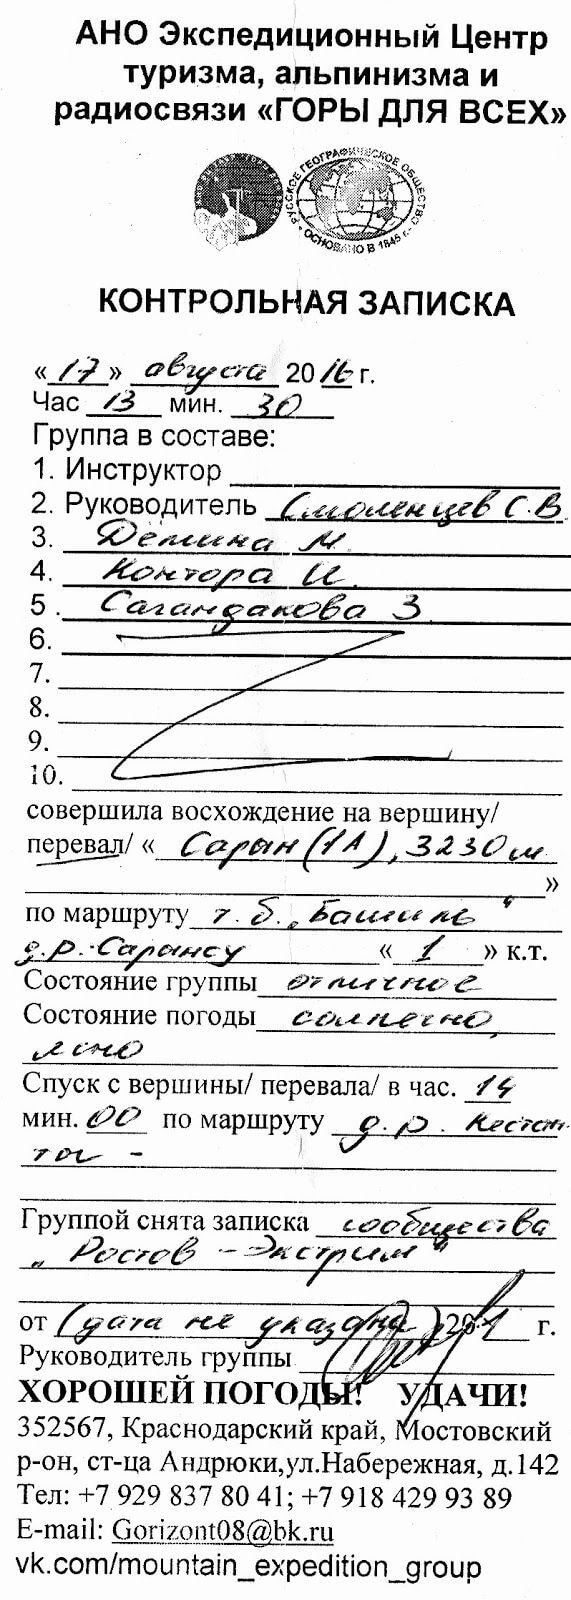 АНО Экспедиционный Центр
туризма, альпинизма и
радиосвязи «ГОРЫ ДЛЯ ВСЕХ»
РУССКОЕ ГЕОГРАФИЧЕСКОЕ ОБЩЕСТВО
ОСНОВАНО В 1845 г.
КОНТРОЛЬНАЯ ЗАПИСКА
«17» августа 2016 г.
Час 13 мин. 30
Группа в составе:
1. Инструктор
2. Руководитель Смоленцев С.В
3. Демина М.
4. Контора И.
5. Сагандакова З
6.
7.
8.
9.
10.
совершила восхождение на вершину/
перевал/ « Сарын (1А), 3230 м
»
по маршруту т.б. „Башиль"
д.р. Сарынсу « 1 » к.т.
Состояние группы отличное
Состояние погоды солнечно,
ясно
Спуск с вершины/ перевала/ в час. 14
мин. 00 по маршруту д.р. Кестан-
тог -
Группой снята записка сообщества
„Ростов - Экстрим"
от (дата не указана) 20 г.
Руководитель группы
ХОРОШЕЙ ПОГОДЫ! УДАЧИ!
352567, Краснодарский край, Мостовский
р-он, ст-ца Андрюки,ул.Набережная, д.142
Тел: +7 929 837 80 41; +7 918 429 93 89
E-mail: Gorizont08@bk.ru
vk.com/mountain_expedition_group